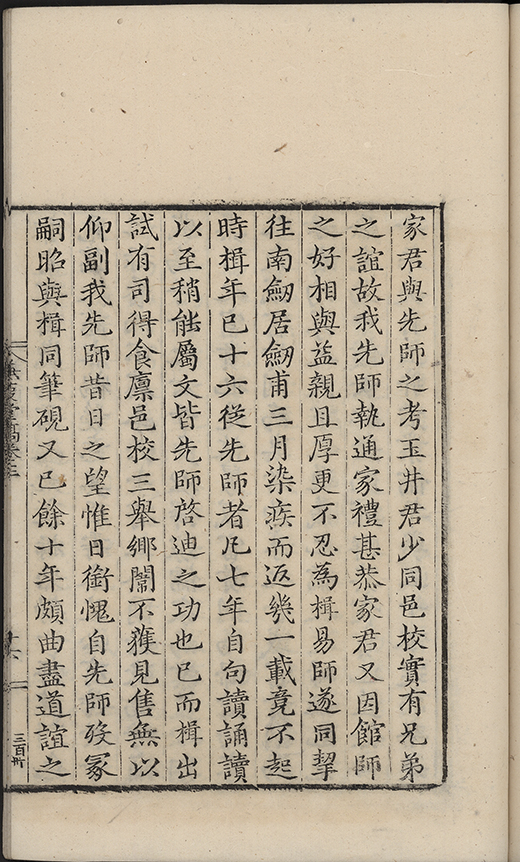 家君與先師之考玉井君少同邑校實有兄弟
之誼故我先師執通家禮甚恭家君又因館師
之好相與益親且厚更不忍為楫易師遂同挈
往南劒居劒甫三月染疾而返幾一載竟不起
時楫年已十六從先師者凡七年自句讀誦讀
以至稍能屬文皆先師啓迪之功也已而楫出
試有司得食廪邑校三舉鄉闈不獲見售無以
仰副我先師昔日之望惟日銜愧自先師歿冢
嗣昭與楫同筆硯又已餘十年頗曲盡道誼之
三百卅